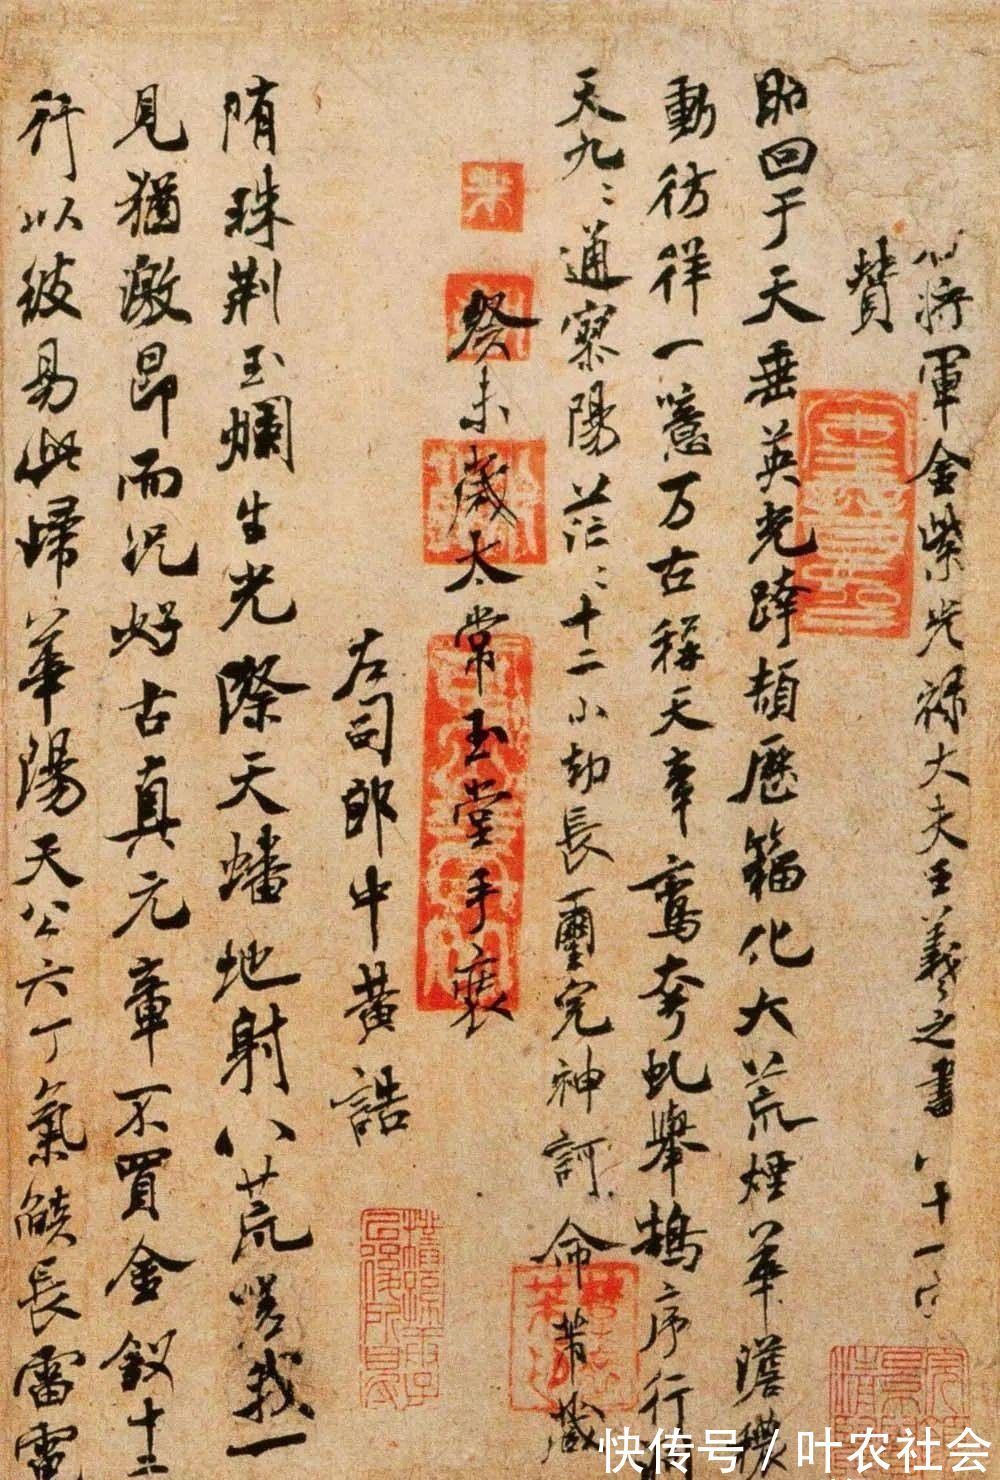 右將軍金紫光祿大夫王羲之書八十一字
贊
昭回于天垂英光跨頡歷籀化大荒煙華澹穠
動彷徉一噫万古稱天章鸞夸虬舉鵠序行
天九〻通寥陽茫〻十二小劫長璽完神訶命芾藏
癸未歲太常玉堂手裝
左司郎中黃誥
隋珠荊玉爛生光際天蟠地射八荒嗟我一
見猶激昂而況好古真元章不買金釵十二
行以彼易此歸華陽天公六丁氣燄長雷電
快传号/叶农社会